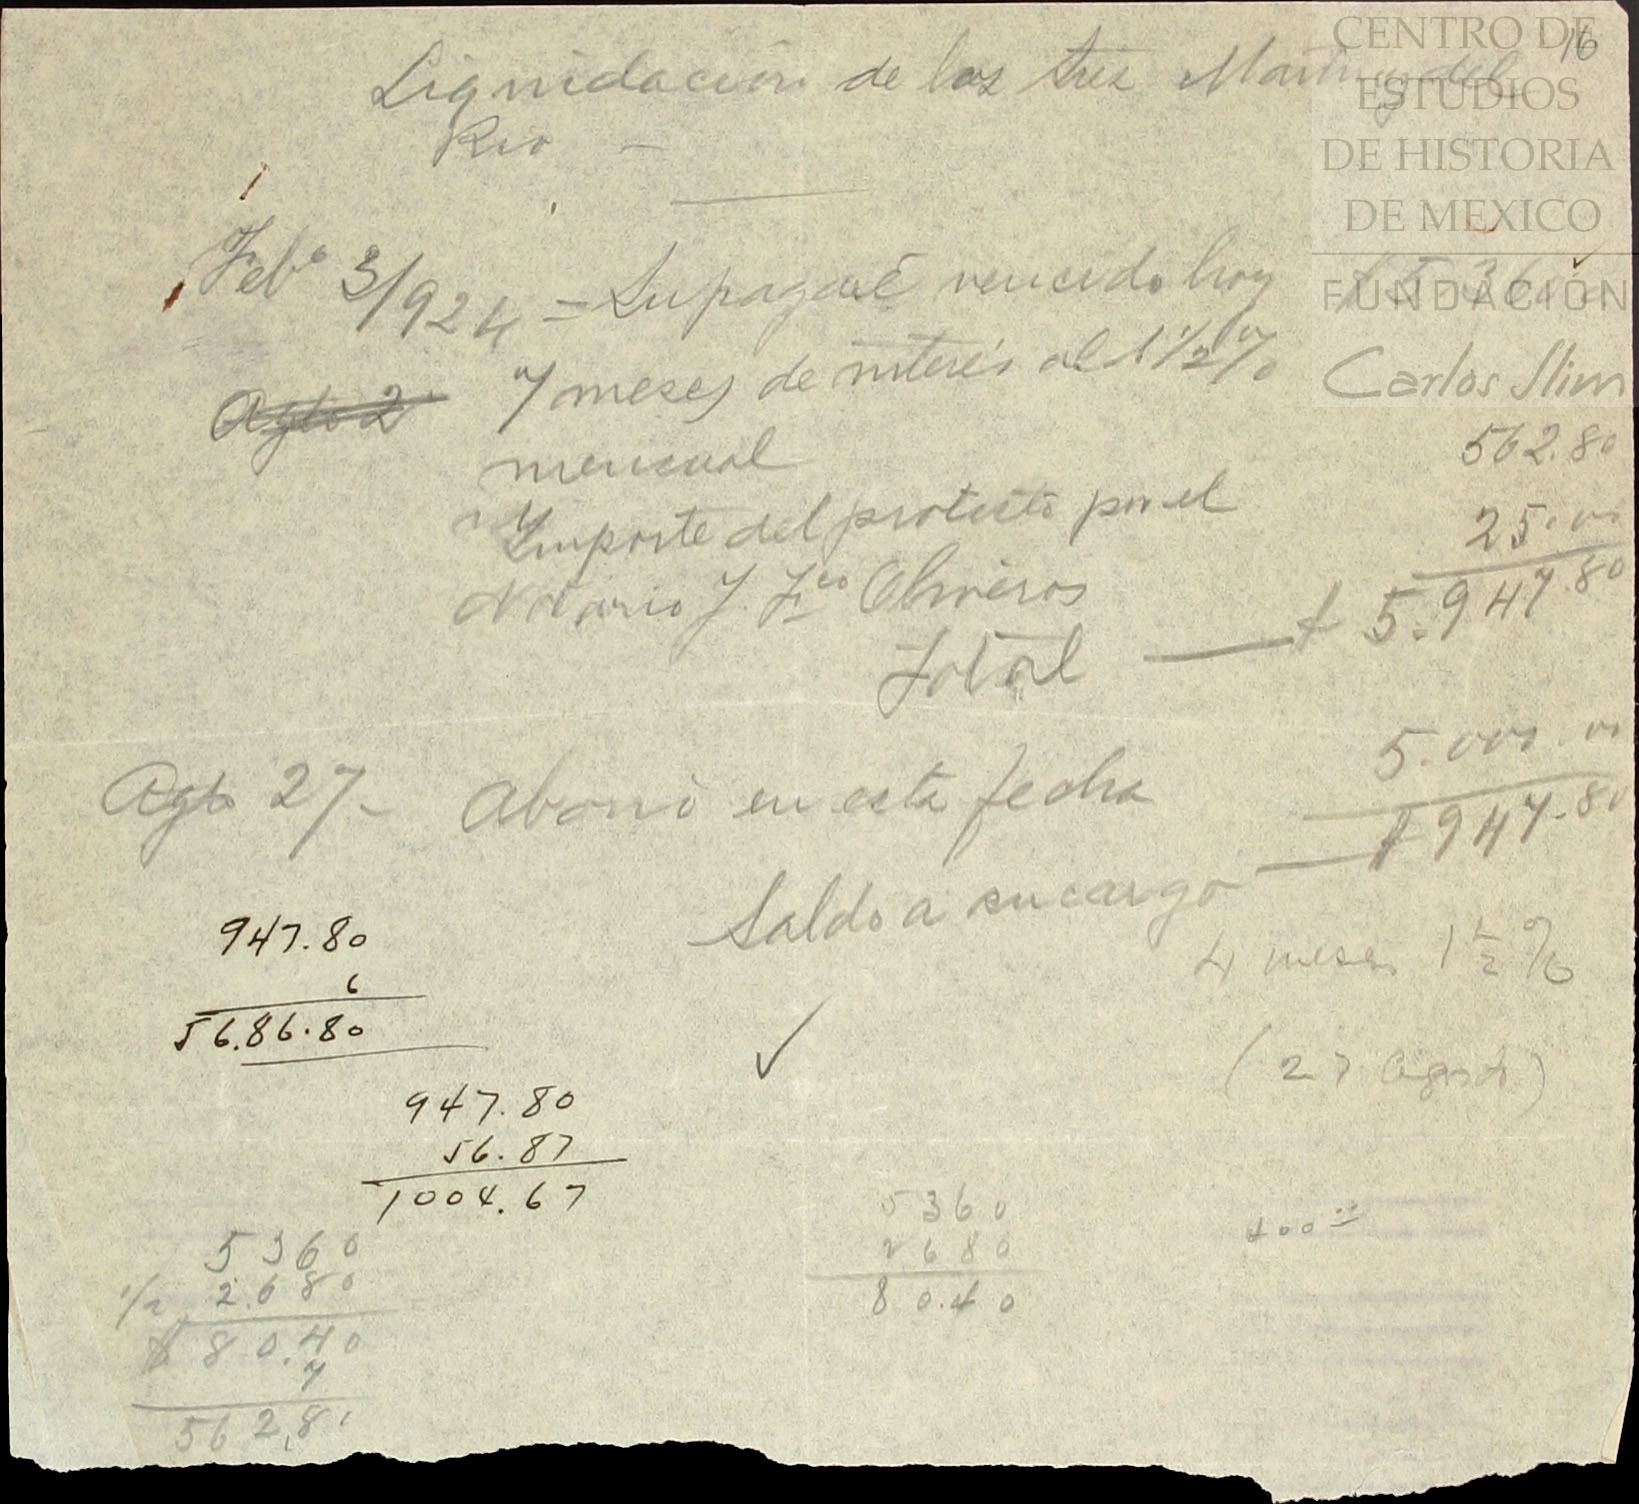 CENTRO DE
ESTUDIOS
DE HISTORIA
DE MEXICO
FUNDACIÓN
Carlos Slim
16
Liquidacion de los Sres Martinez del
Rio —
Febº 3/924 = Su pagaré vencido hoy $ 5.360.
Agto 2 7 meses de interés al 1 1/2 %
mensual 562.80
Importe del protesto por el 25.00
Notario J. Fco Oliveros
Total — $ 5.947.80
Agto 27 - Abonó en esta fecha 5.000.00
Saldo a su cargo — $ 947.80
4 meses 1 1/2 %
(27 Agosto)
947.80
6
56.86.80
✓
947.80
56.87
1004.67
5360
1/2 2.680
$ 80.40
7
562.8
5360
2680
80.40